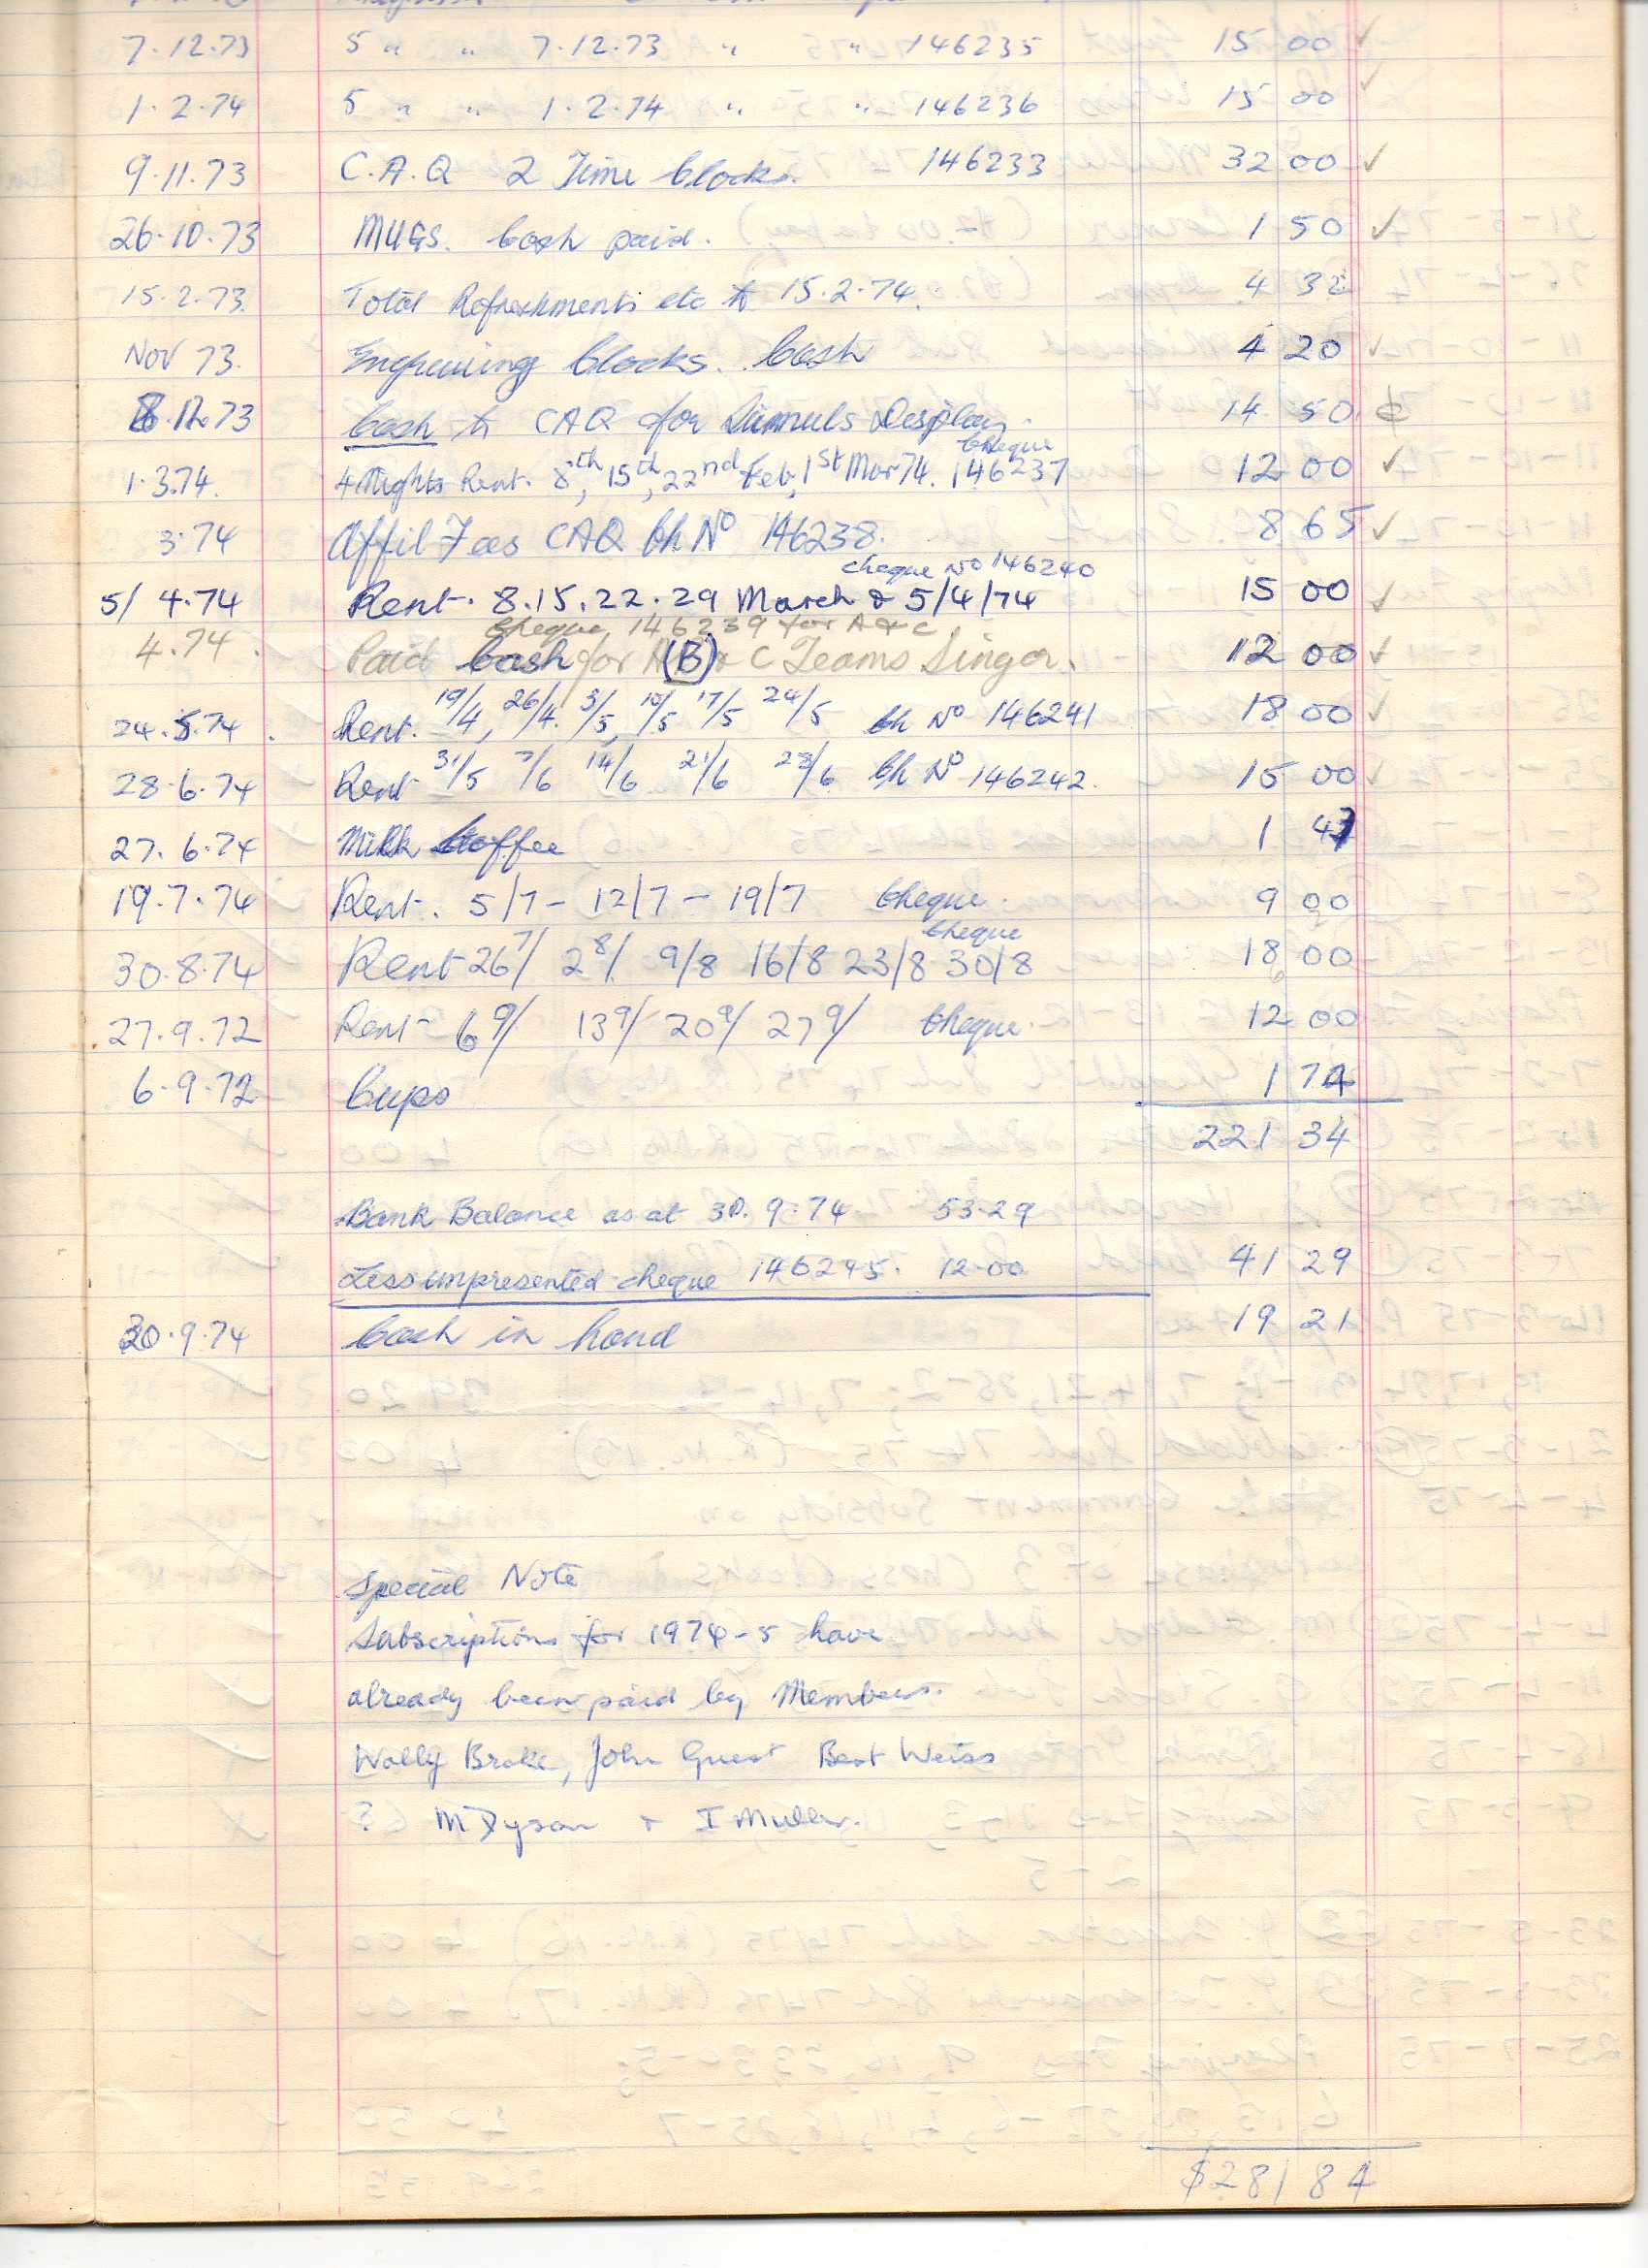 7.12.73 5 " " 7.12.73 " " 146235 15 00 ✓
1.2.74 5 " " 1.2.74 " " 146236 15 00 ✓
9.11.73 C.A.Q 2 Time Clocks. 146233 32 00 ✓
26.10.73 MUGS. Cash paid. 1 50 ✓
15.2.73 Total Refreshments etc to 15.2.74. 4 32
Nov 73. Engraving Clocks.. Cash 4 20 ✓
12.73 Cash to CAQ for Simuls Display. 14 50
Cheque
1.3.74. 4 Nights Rent. 8th, 15th, 22nd Feb, 1st Mar 74. 146237 12 00 ✓
3.74 Affil Fees CAQ Ch No 146238. 8 65 ✓
cheque No 146240
5/4.74 Rent. 8.15.22.29 March & 5/4/74 15 00 ✓
Cheque 146239 for A & C.
4.74. Paid Cash for (B) & C Teams 12 00 ✓
24.5.74. Rent. 19/4, 26/4. 3/5, 10/5 17/5 24/5 Ch No 146241 18 00 ✓
28.6.74 Rent 31/5 7/6 14/6 21/6 28/6 Ch No 146242. 15 00 ✓
27.6.74 Milk Coffee 1 43
19.7.74 Rent. 5/7 - 12/7 - 19/7 Cheque. 9 00
Cheque
30.8.74 Rent 26 7/ 2 8/ 9/8 16/8 23/8 30/8 18 00
27.9.72 Rent - 6 9/ 13 9/ 20 9/ 27 9/ Cheque. 12 00
6.9.72 Cups 1 74
221 34
Bank Balance as at 30.9.74 53.29
Less unpresented cheque 146245. 12.00 41 29
30.9.74 Cash in hand 19 21
Special Note
Subscriptions for 1974-5 have
already been paid by Members.
Wally Broke, John Guest Bert Weiss
? M Dyson + I Muller.
$281 84